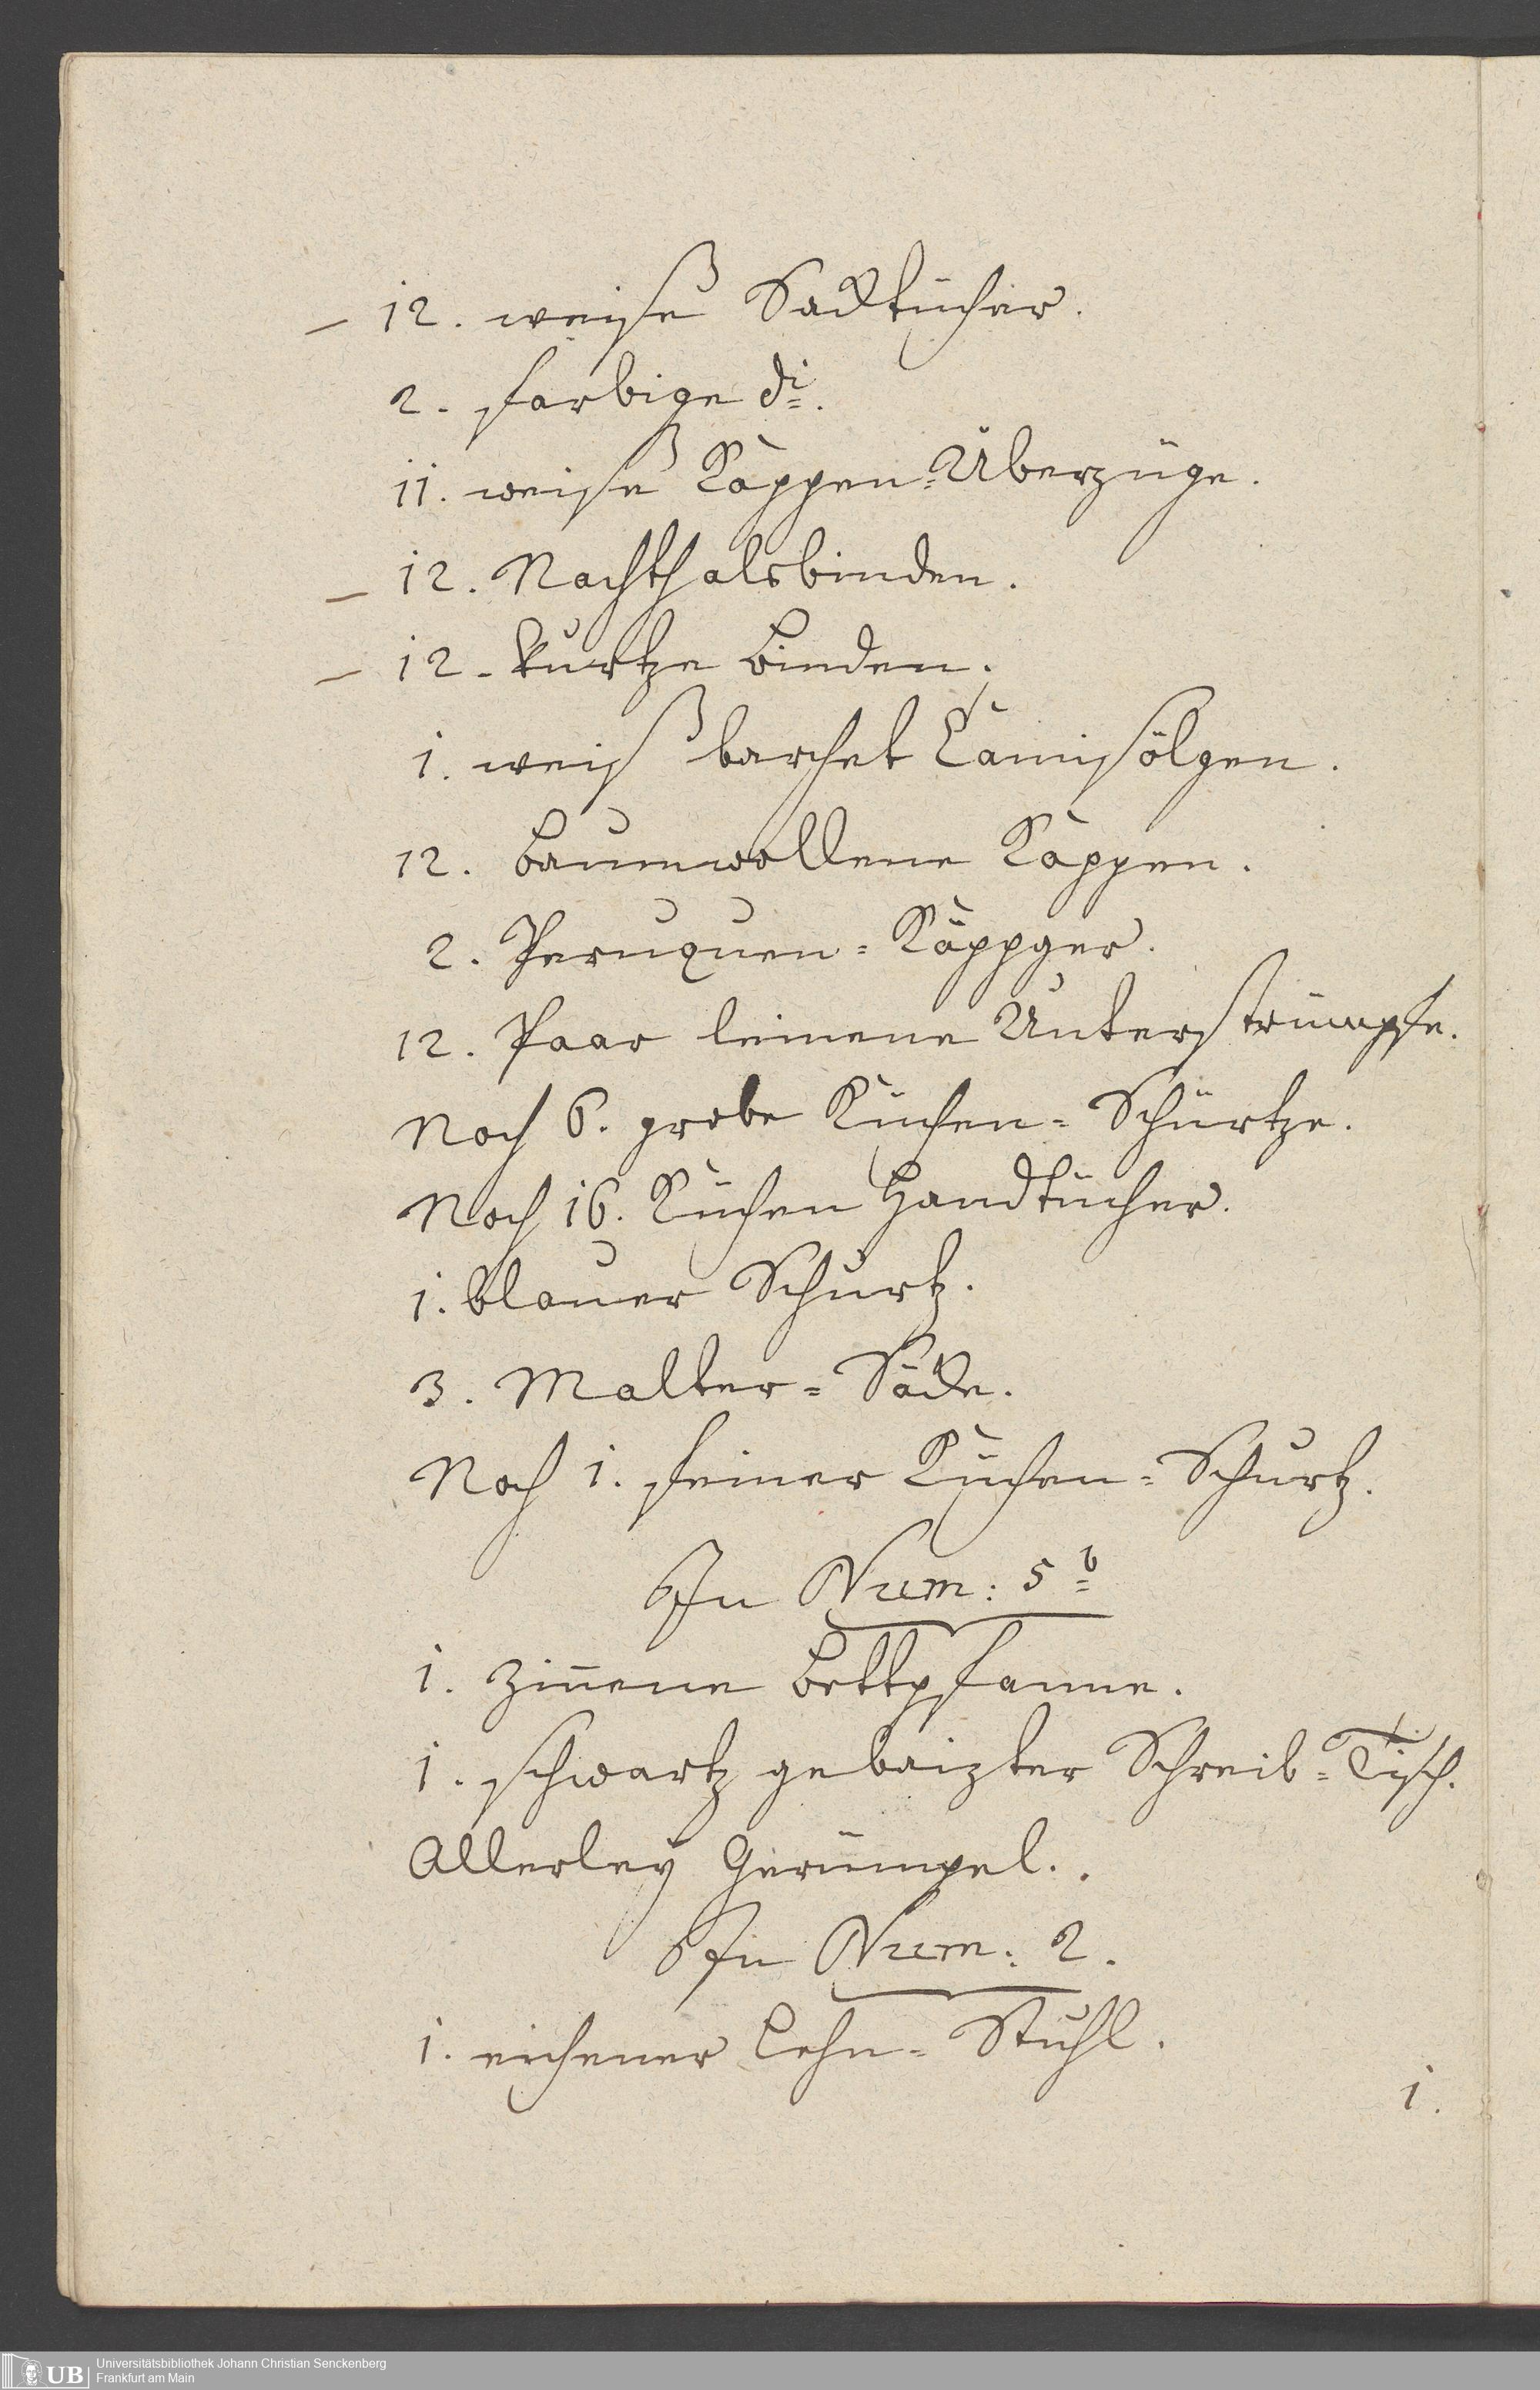 – 12. weiße Sacktücher.
2. farbige d<sup>i</sup>.
11. weiße Kappen-Überzüge.
– 12. Nachthalsbinden.
– 12. kurtze Binden.
1. weiß barchet Camisölgen.
12. Baumwollene Kappen.
2. Peruquen-Käppger.
12. Paar leinene Unterstrümpfe.
Noch 6. grobe Küchen-Schürtze.
Noch 16. Küchen Handtücher.
1. blauer Schurtz.
3. Malter-Säcke.
Noch 1. feiner Küchen-Schurtz.
In Num: 5<sup>b</sup>
1. Zin̄ene Bettpfanne.
1. schwartz gebaizter Schreib-Tisch.
Allerley Gerümpel.
In Num: 2.
1. eichener Lehn-Stuhl.
1.
UB
Universitätsbibliothek Johann Christian Senckenberg
Frankfurt am Main